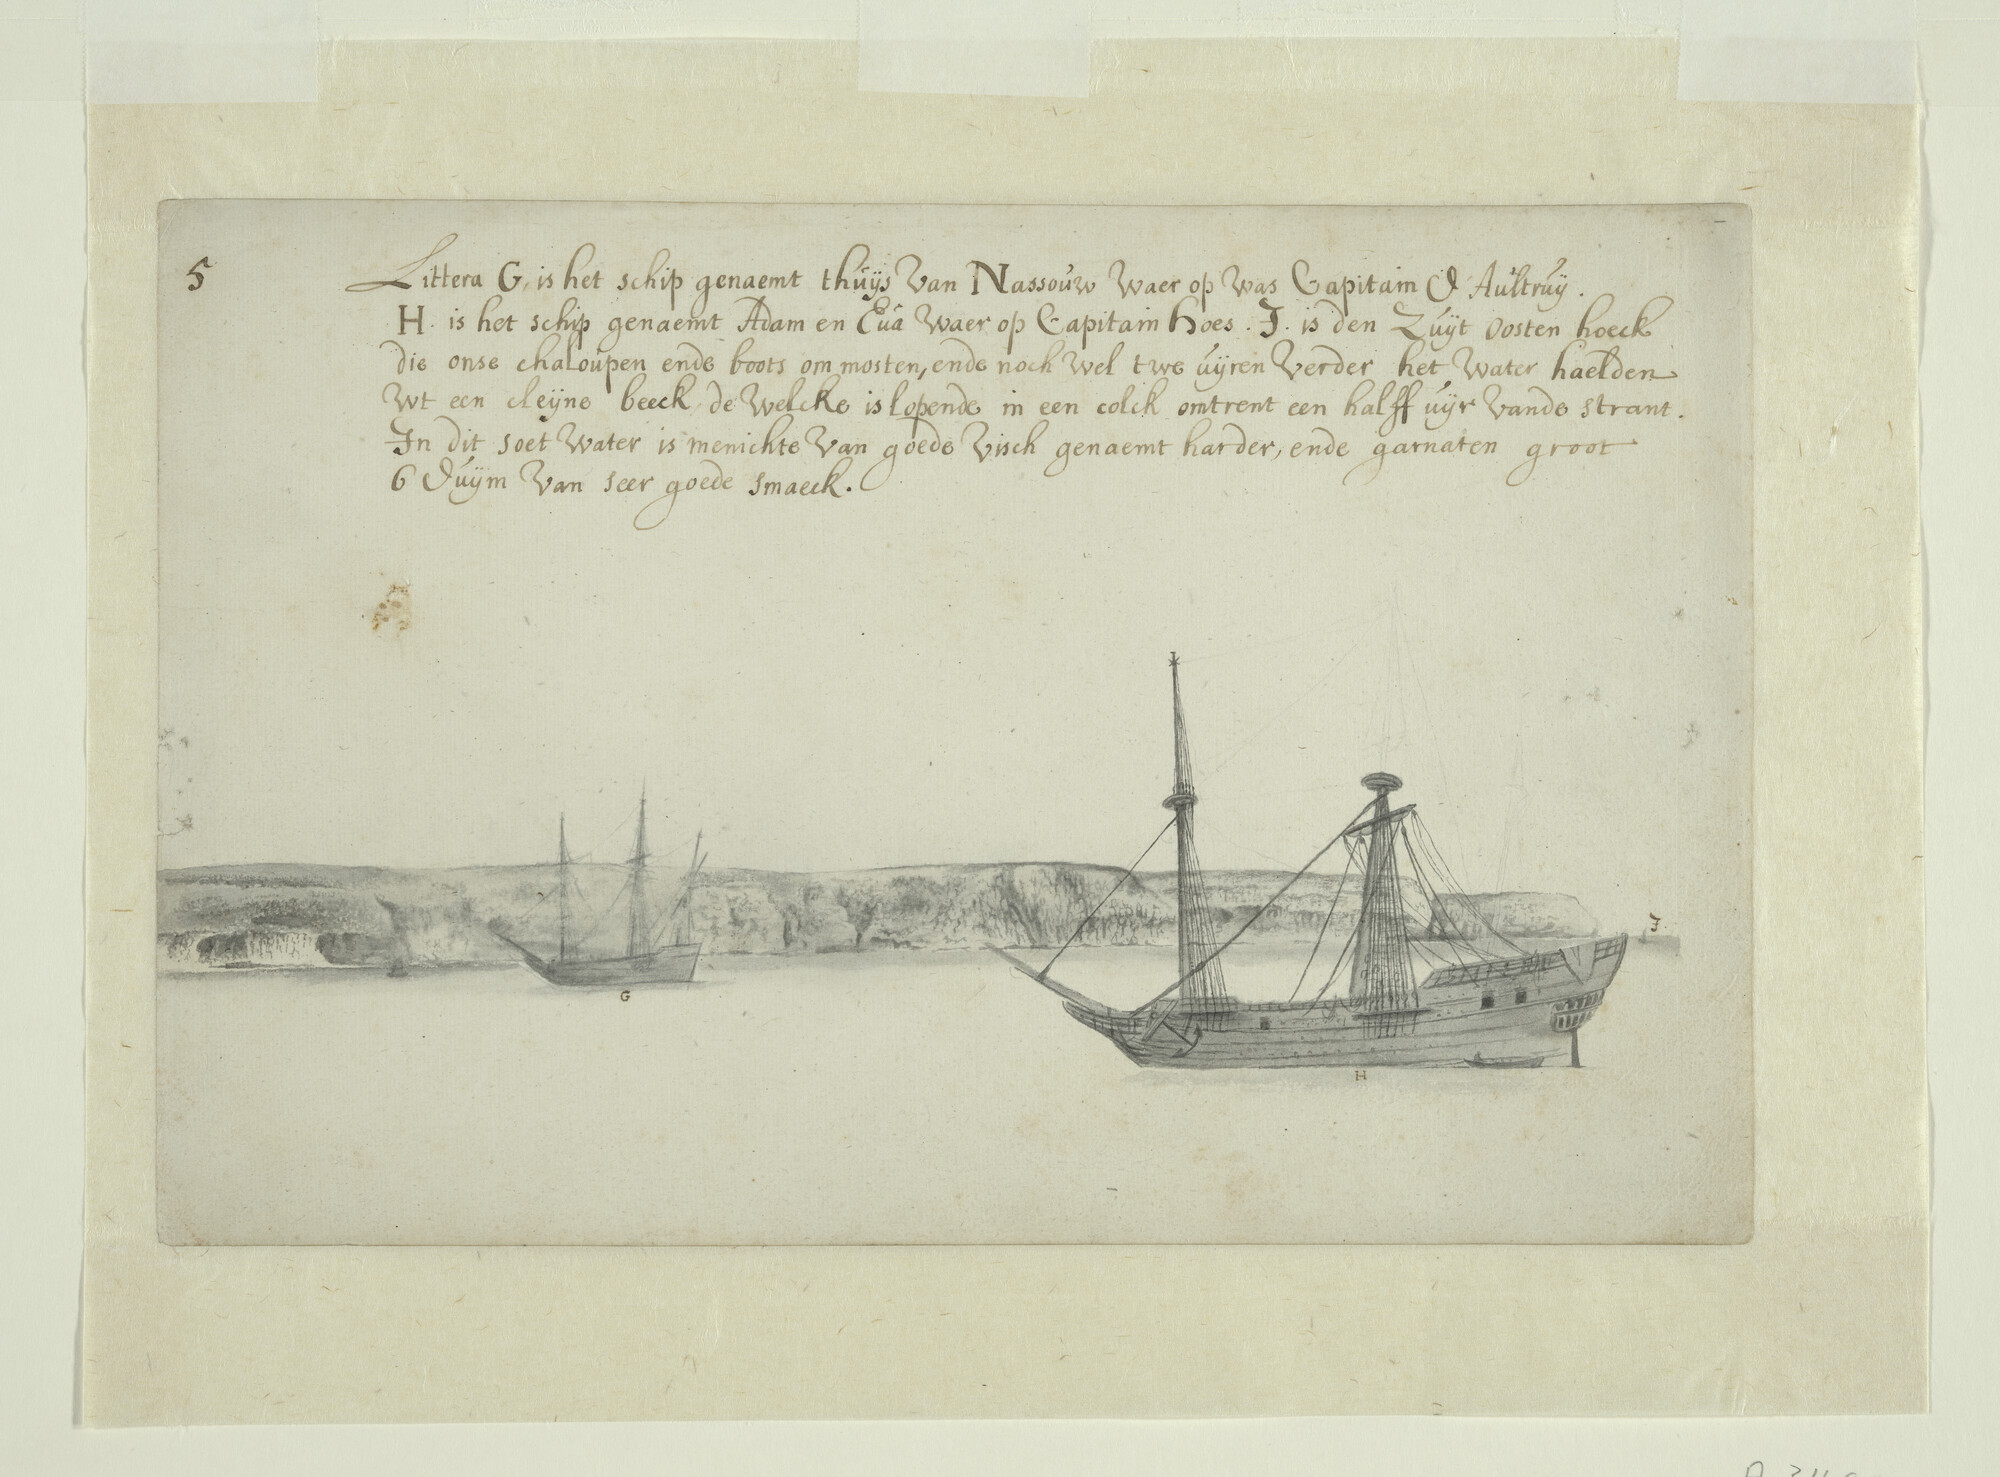 5
Littera G, is het schip genaemt thuijs van Nassouw waer op was Capitain d'Aultruij.
H. is het schip genaemt Adam en Eua waer op Capitain Hoes. J. is den Zuijt oosten hoeck
die onse chaloupen ende boots om mosten, ende noch wel twe uijren verder het water haelden
wt een cleijne beeck, de welcke is lopende in een colck omtrent een halff uijr vande strant.
In dit soet water is menichte van goede visch genaemt harder, ende garnaten groot
6 duijm van seer goede smaeck.
J.
G
H